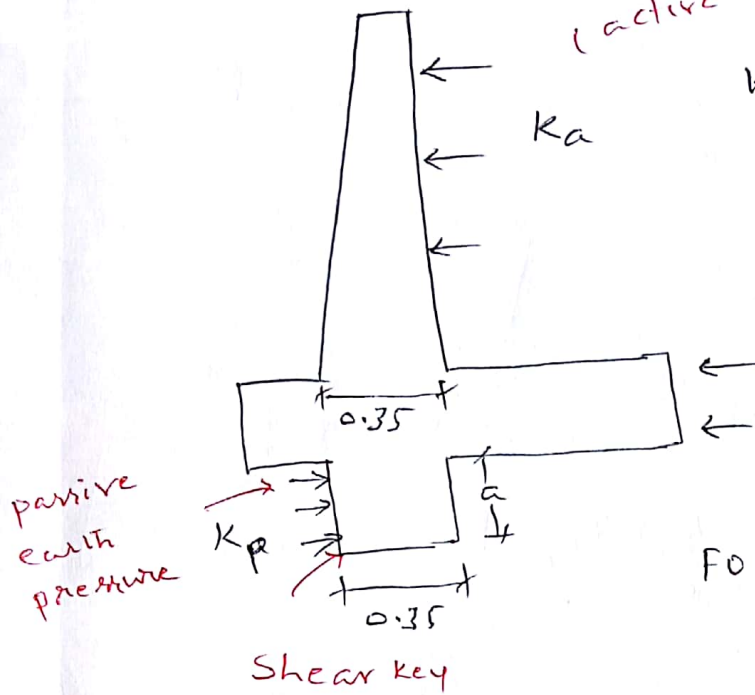 ( active
Ka
0.35
a
passive
earth
pressure
Kp
0.35
FO
Shear key